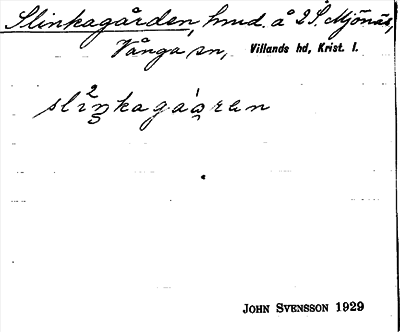 Slinkagården, hmd. å 2 S. Mjönäs,
Vånga sn, Villands hd, Krist. l.
sli2nkagáaren
JOHN SVENSSON 1929